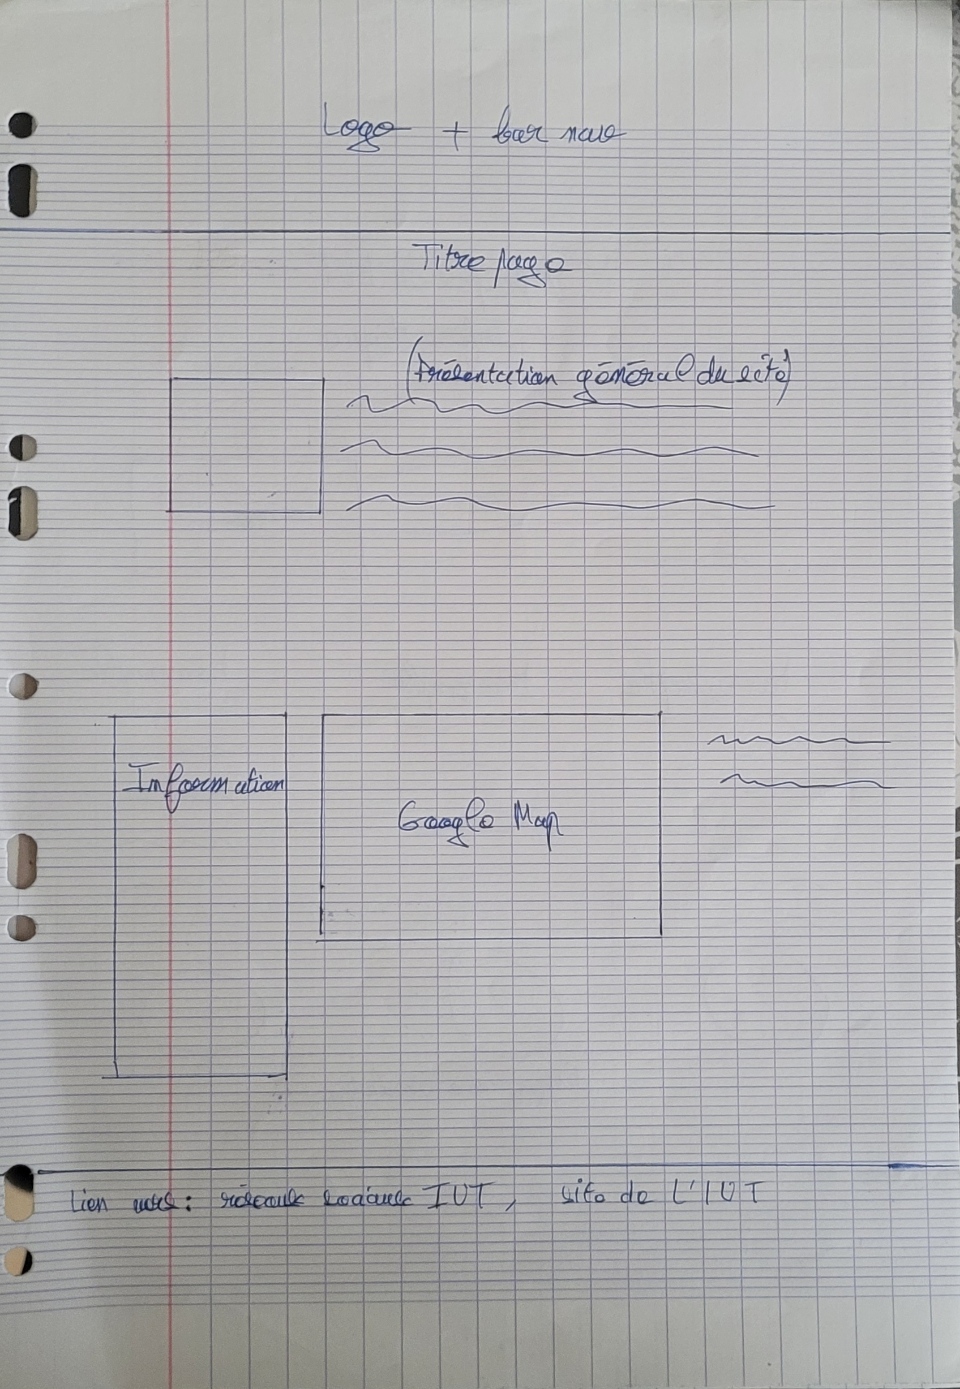 Logo + bar nav
Titre page
(Présentation général du site)
Information
Google Map
Lien vers : réseaux sociaux IUT, site de L'IUT